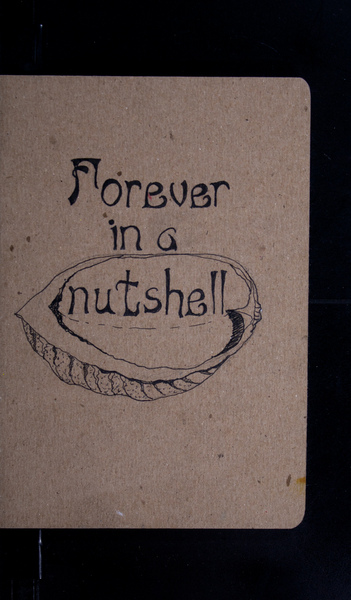 Forever
in a
nutshell